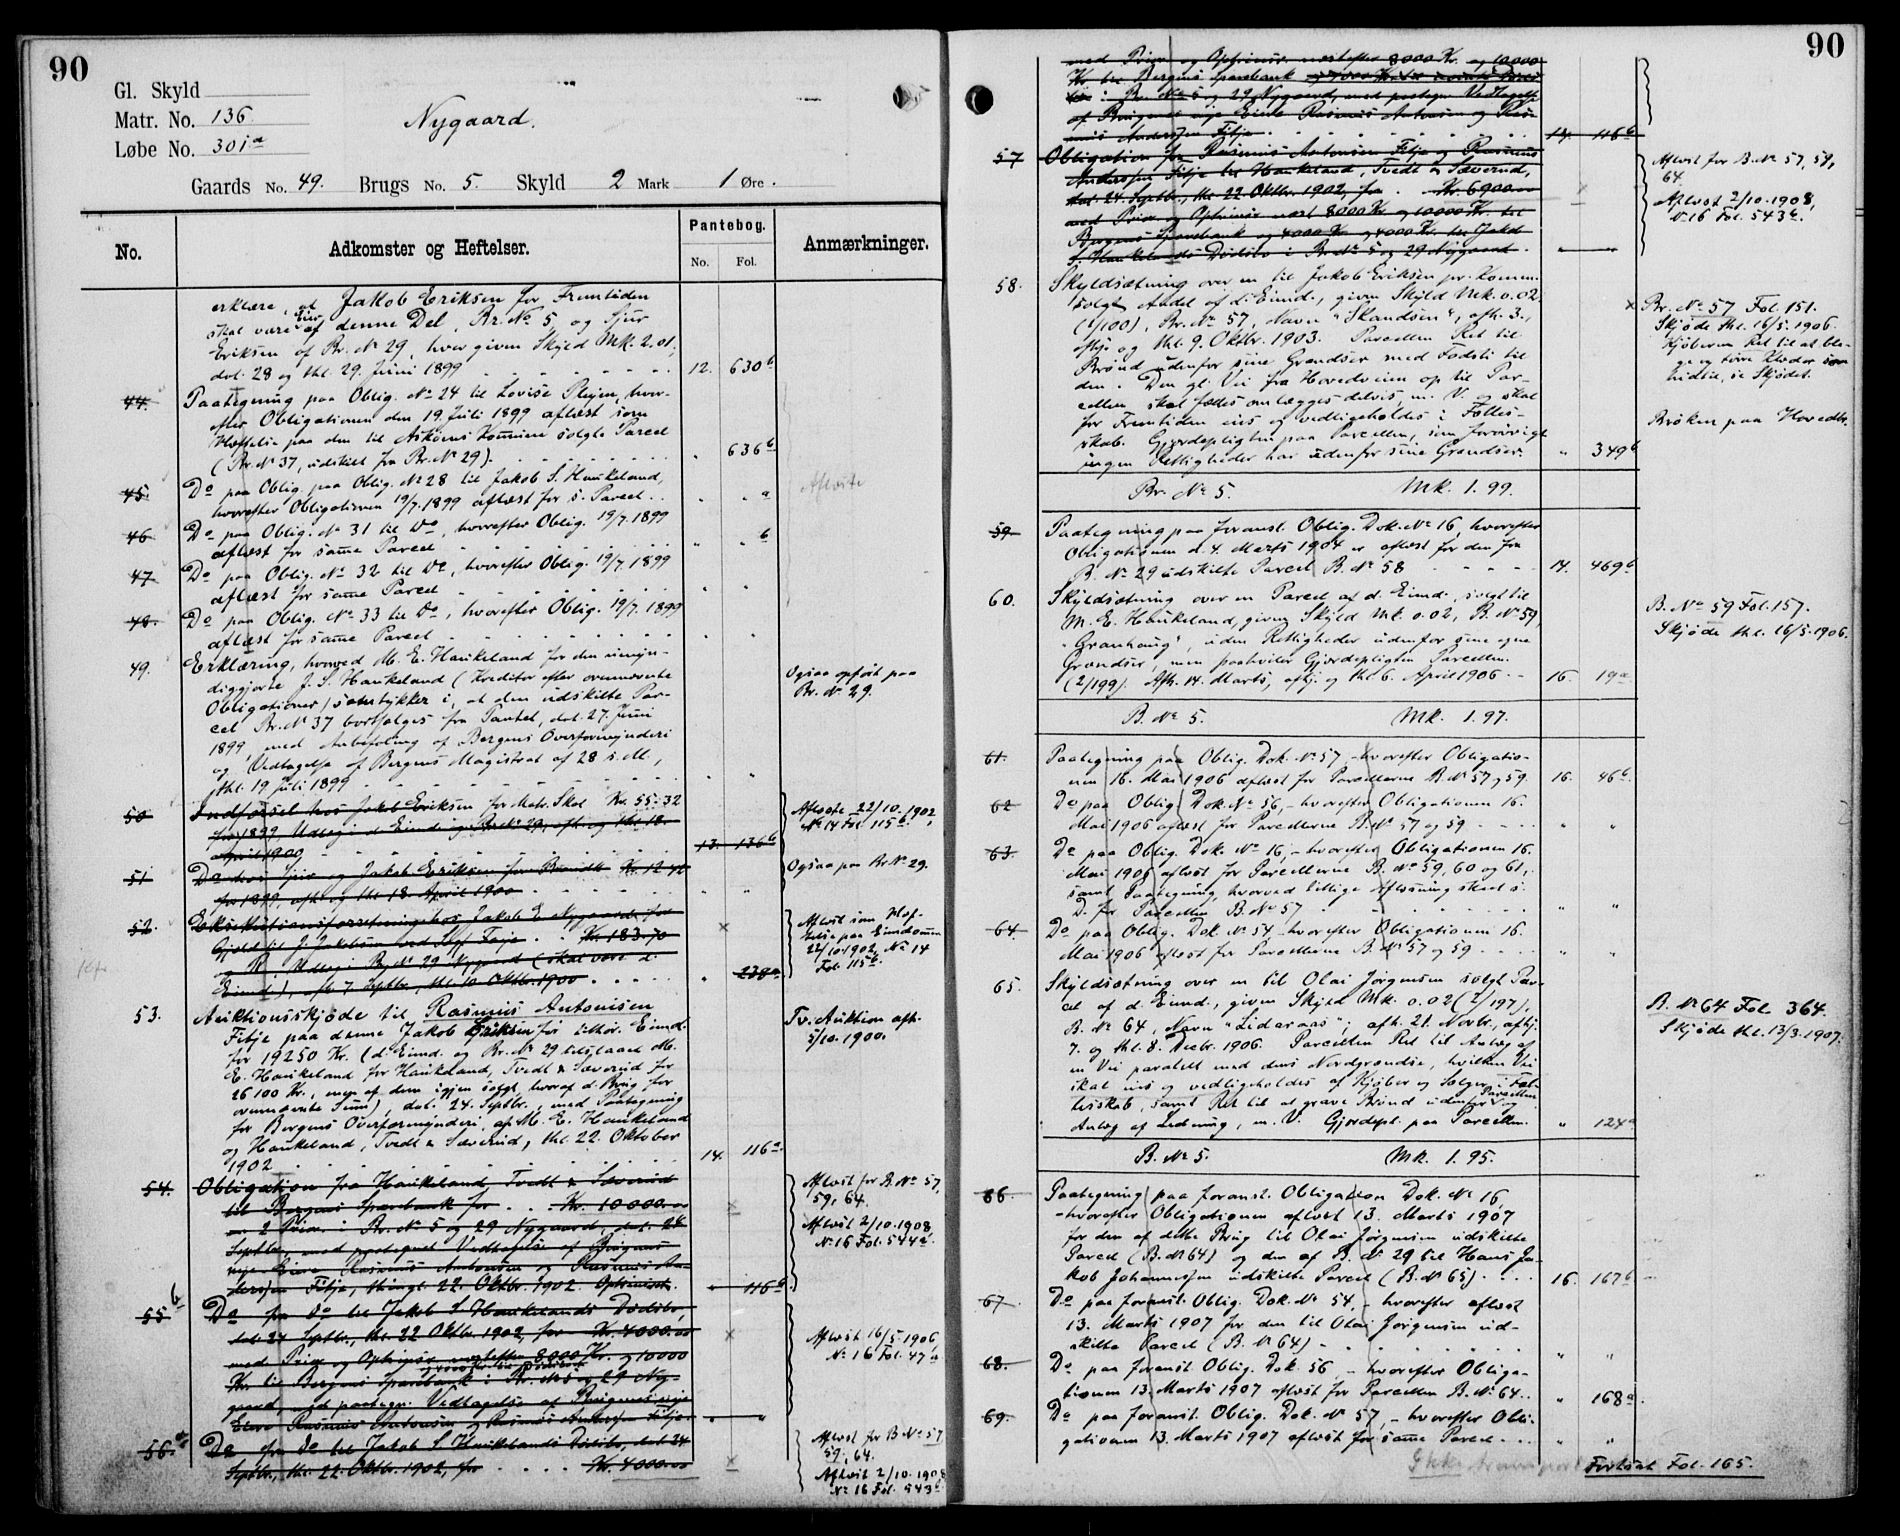 90
Gl. Skyld
Matr. No. 136
Løbe No. 301a
Nygaard.
Gaards No. 49. Brugs No. 5. Skyld 2 Mark 1 Øre.
No. Adkomster og Heftelser. Pantebog. No. Fol. Anmærkninger.
erklære, at Jakob Eriksen for Fremtiden
skal være Eier af denne Del, Br. No 5 og Sjur
Eriksen af Br. No 29, hver given Skyld Mk. 2.01,
dat. 28 og thl. 29. Juni 1899 12. 630b
44. Paategning paa Oblig. No 24 til Lovise Plejen, hvor-
efter Obligationen den 19. Juli 1899 aflæst som
Heftelse paa den til Askøens Kommune solgte Parcel
(Br. No 37, udskilt fra Br. No 29) " 636b
45. Do paa Oblig. paa Oblig. No 28 til Jakob S. Haukeland,
hvorefter Obligationen 19/7.1899 aflæst for s. Parcel . . " " a Aflæste
46 Do paa Oblig. No 31 til Do, hvorefter Oblig. 19/7.1899
aflæst for samme Parcel " " b
47. Do paa Oblig. No 32 til Do, hvorefter Oblig. 19/7.1899
aflæst for samme Parcel " "
48. Do paa Oblig. No 33 til Do, hvorefter Oblig. 19/7.1899
aflæst for samme Parcel " "
49. Erklæring, hvorved M. E. Haukeland for den umyn-
diggjorte J. S. Haukeland (Kreditor efter ovennævnte
Obligationer) samtykker i, at den udskilte Par-
cel Br. No 37 bortsælges fra Pantet, dat. 27. Juni
1899 med Anbefaling af Bergens Overformynderi
og Vedtagelse af Bergens Magistrat af 28 s. M.,
thl. 19 Juli 1899 " "
Ogsaa opført paa
Br. No 29.
50. Indførsel hos Jakob Eriksen for Matr. Skat Kr. 55-32
for 1899. Udlæg i d. Eiend. og Br. No 29, afh. og thl. 18.
April 1900 13. 136b
Aflæste 22/10.1902,
No 14 Fol 115b.
51 Do hos Sjur og Jakob Eriksen for Brandk. Kr. 12-42
for 1899, afh. og thl. 18. April 1900 " "
Ogsaa paa Br No 29.
52. Eksekutionsforretning hos Jakob E. Nygaard for
Gjæld til J. Jakobsen ved Sgf. Faje . . Kr. 183.70
Udlæg i Br. No 29 Nygaard (skal være d.
Eiend.), afh 7. Septbr., thl. 10. Oktbr. 1900 " 238a
Aflæst som Hef-
telse paa Eiendommen
22/10 1902, No 14
Fol. 115b.
53. Auktionsskjøde til Rasmus Antonisen
Fitje paa denne Jakob Eriksen før tilhør. Eiend.
for 19250 Kr. (d. Eiend. og Br. No 29 tilslaaet M.
E. Haukeland for Haukeland, Tvedt & Sæverud for
26100 Kr., men af dem igjen solgt, hvoraf d. Brug for
ovennævnte Sum), dat. 24. Septbr., med Paategning
for Bergens Overformynderi, af M. E. Haukeland
og Haukeland, Tvedt & Sæverud, thl. 22. Oktober
1902 14. 116a
Tv. Auktion afh.
5/10.1900.
54. Obligation fra Haukeland Tvedt & Sæverud
til Bergens Sparebank for . . Kr. 10000.00
m 2 Prior. i Br. No 5 og 29 Nygaard, dat. 24
Septbr., med paategnet Vedtagelse af Brugenes
nye Eiere Rasmus Antonsen og Rasmus An-
derssen Fitje, thingl. 22. Oktbr. 1902. Opfrinsr. " 116b
Aflæst for B. No 57,
59, 64.
Aflæst 2/10.1908,
No 16 Fol. 544a.
55b Do fra Do til Jakob S Haukelands Dødsbo,
dat. 24 Septbr., thl. 22 Oktbr. 1902, for Kr. 4000.00
med Prior og Opfrinsr. næstefter 8000 Kr. og 10000
Kr. til Bergens Sparebank i Br. No 5 og 29 Ny-
gaard, med paategn. Vedtagelse af Brugenes nye
Eiere Rasmus Antonsen og Rasmus Anderssen Fitje. " "
Aflæst 16/5.1906,
No 16 Fol. 47a
56.a Do fra Do til Jakob S Haukelands Dødsbo, dat. 24
Septbr., thl. 22. Oktbr. 1902, for Kr. 4000.00
Aflæst for B No 57
59, 64.
Aflæst 2/10.1908
No 16 Fol. 543b.
90
med Prior og Opfrinsr. næstefter 8000 Kr. og 10000
Kr. til Bergens Sparebank
i Br. No 5 og 29 Nygaard, med paategn. Vedtagelse
af Brugenes nye Eiere Rasmus Antonsen og Ras-
mus Anderssen Fitje 14. 116b
57 Obligation fra Rasmus Antonsen Fitje og Rasmus
Anderssen Fitje til Haukeland, Tvedt & Sæverud,
dat. 24. Septbr., thl. 22 Oktbr. 1902, for Kr. 6900.00
med Prior og Opfrinsr. næst 8000 Kr. og 10000 Kr. til
Bergens Sparebank og 4000 Kr. og 4000 Kr. til Jakob
S. Haukelands Dødsbo i Br. No 5 og 29 Nygaard " "
Aflæst for B. No 57, 59,
64
Aflæst 2/10.1908,
No 16 Fol. 543b.
58. Skyldsætning over en til Jakob Eriksen pr. Komm.
solgt Andel af d. Eiend., given Skyld Mk. 0.02.
(2/100), Br. No 57, Navn "Skandsen", afh. 3.,
afhj. og thl. 9. Oktbr. 1903. Parcellen Ret til
Brønd udenfor sine Grændser med Fodsti til
den. Den gl. Vei fra Hovedveien op til Par-
cellen skal fælles omlægges delvis, m. V. og skal
for Fremtiden eies og vedligeholdes i Fælles-
skab. Gjerdepligten paa Parcellen, som forøvrigt
ingen Rettigheder har udenfor sine Grændser. " 349b
Br. No 57 Fol. 151.
Skjøde thl. 16/5.1906.
Kjøberen Ret til at ble-
ge og tørre Klæder som
hidtil, se Skjødet.
Brøken paa Hovedbr.
Br. No 5. Mk. 1.99.
59 Paategning paa foranst. Oblig. Dok. No 16, hvorefter
Obligationen d. 4. Marts 1904 er aflæst for den fra
B. No 29 udskilte Parcel B. No 58 14. 469b
60. Skyldsætning over en Parcel af d. Eiend., solgt til
M. E. Haukeland, given Skyld Mk 0.02, B. No 59,
"Granhaug", uden Rettigheder udenfor sine egne
Grændser, men paahviler Gjerdepligten Parcellen.
(2/199). Afh. 14. Marts, afhj. og thl 6. April 1906 16. 19a
B. No 59 Fol. 157.
Skjøde thl. 16/5.1906.
B. No 5. Mk. 1.97.
61. Paategning paa Oblig. Dok. No 57, hvorefter Obligatio-
nen 16. Mai 1906 aflæst for Parcellerne B. No 57 og 59. 16. 46b.
62 Do paa Oblig. Dok. No 56, hvorefter Obligationen 16.
Mai 1906 aflæst for Parcellerne B. No 57 og 59 " "
63. Do paa Oblig. Dok. No 16, hvorefter Obligationen 16.
Mai 1906 aflæst for Parcellerne B. No 59, 60 og 61,
samt Paategning, hvorved tillige Aflæsning skeet s.
D. for Parcellen B. No 57 " "
64. Do paa Oblig. Dok. No 54 hvorefter Obligationen 16.
Mai 1906 aflæst for Parcellerne B. No 57 og 59 " "
65. Skyldsætning over en til Olai Jørgensen solgt Par-
cel af d. Eiend., given Skyld Mk. 0.02 (2/197),
B. No 64, Navn "Lideraas", afh. 21. Novbr., afhj.
7. og thl. 8. Decbr. 1906. Parcellen Ret til Anlæg af
en Vei paralelt med dens Nordgrændse, hvilken Vei
skal eies og vedligeholdes af Kjøber og Sælger i Fæl-
lesskab, samt Ret til at grave Brønd udenfor Parcellen og
Anlæg af Ledning, m. V. Gjerdepl. paa Parcellen. " 124a
B. No 64 Fol 364.
Skjøde thl. 13/3.1907.
B. No 5. Mk. 1.95.
66. Paategning paa foranst. Obligation Dok. No 16
hvorefter Obligationen aflæst 13. Marts 1907
for den af dette Brug til Olai Jørgensen udskilte
Parcel (B. No 64) og den af B. No 29 til Hans Ja-
kob Johannessen udskilte Parcel (B. No 65) 16. 167b
67. Do paa foranst. Oblig. Dok. No 54, hvorefter aflæst
13. Marts 1907 for den til Olai Jørgensen ud-
skilte Parcel (B. No 64) " "
68. Do paa foranst Oblig. Dok. 56, hvorefter Obliga-
tionen 13. Marts 1907 aflæst for Parcellen B. No 64. " 168a
69. Do paa foranst. Oblig. Dok. No 57, hvorefter Obli-
gationen 13. Marts 1907 aflæst for samme Parcel " "
Fortsat Fol. 165.